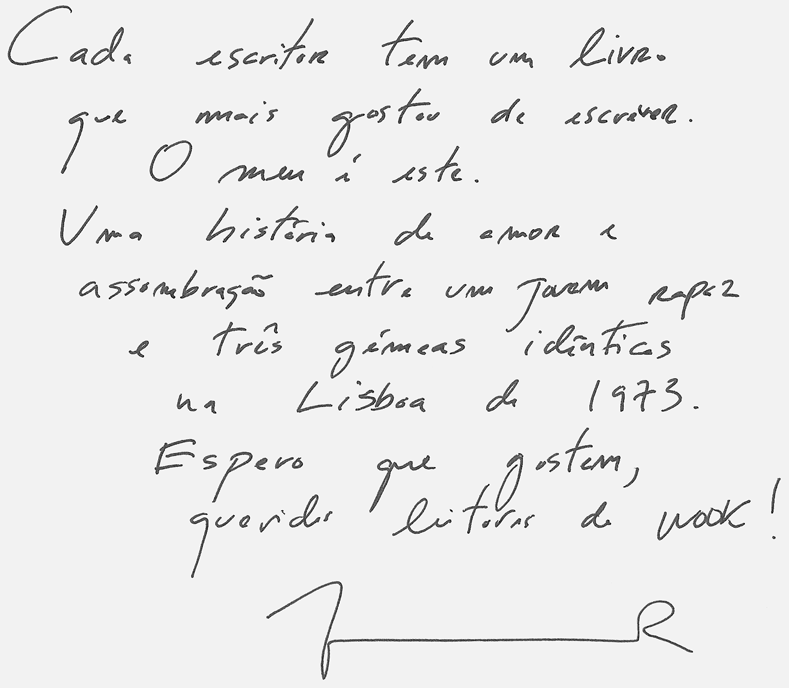 Cada escritor tem um livro
que mais gostou de escrever.
O meu é este.
Uma história de amor e
assombração entre um jovem rapaz
e três gémeas idênticas
na Lisboa de 1973.
Espero que gostem,
queridos leitores da WOOK!